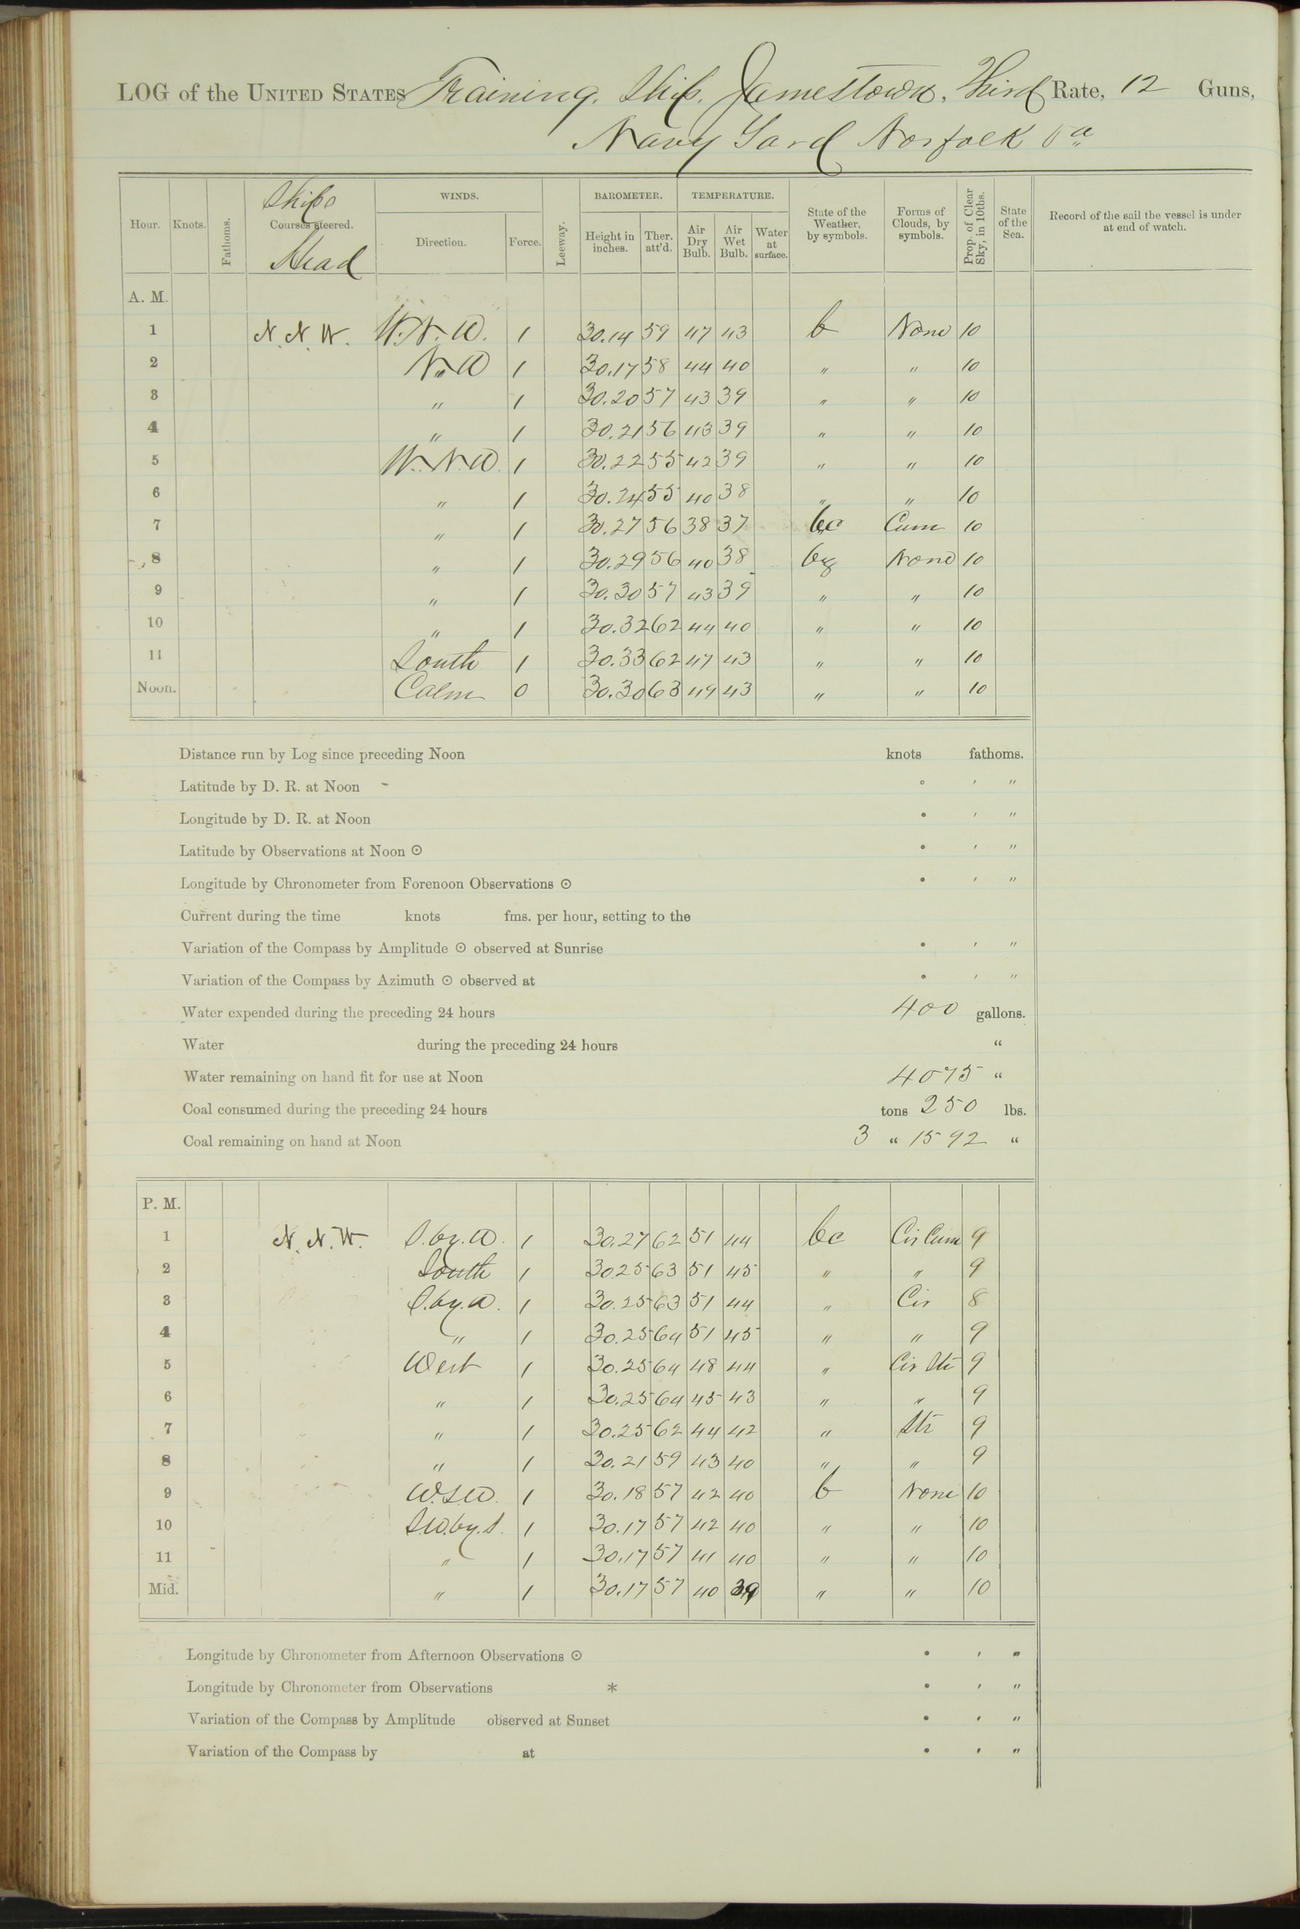 LOG of the UNITED STATES Training Ship Jamestown, Third Rate, 12 Guns,
Navy Yard Norfolk Va
Hour. Knots. Fathoms. Ships Courses steered. Head WINDS. Direction. Force. Leeway. BAROMETER. Height in inches. Ther. att'd. TEMPERATURE. Air Dry Bulb. Air Wet Bulb. Water at surface. State of the Weather, by symbols. Forms of Clouds, by symbols. Prop. of Clear Sky, in 10ths. State of the Sea. Record of the sail the vessel is under at end of watch.
A. M.
1 N.N.W. W.N.W. 1 30.14 59 47 43 b None 10
2 N.W 1 30.17 58 44 40 " " 10
3 " 1 30.20 57 43 39 " " 10
4 " 1 30.21 56 43 39 " " 10
5 W.N.W. 1 30.22 55 42 39 " " 10
6 " 1 30.24 55 40 38 " " 10
7 " 1 30.27 56 38 37 bc Cum 10
8 " 1 30.29 56 40 38 None 10
9 " 1 30.30 57 43 39 " " 10
10 " 1 30.32 62 44 40 " " 10
11 South 1 30.33 62 47 43 " " 10
Noon. Calm 0 30.30 63 49 43 " " 10
Distance run by Log since preceding Noon knots fathoms.
Latitude by D. R. at Noon ° ′ ″
Longitude by D. R. at Noon ° ′ ″
Latitude by Observations at Noon ☉ ° ′ ″
Longitude by Chronometer from Forenoon Observations ☉ ° ′ ″
Current during the time knots fms. per hour, setting to the
Variation of the Compass by Amplitude ☉ observed at Sunrise ° ′ ″
Variation of the Compass by Azimuth ☉ observed at ° ′ ″
Water expended during the preceding 24 hours 400 gallons.
Water during the preceding 24 hours "
Water remaining on hand fit for use at Noon 4075 "
Coal consumed during the preceding 24 hours tons 250 lbs.
Coal remaining on hand at Noon 3 " 1592 "
P. M.
1 N.N.W. S.by.W. 1 30.27 62 51 44 bc Cir Cum 9
2 South 1 30.25 63 51 45 " " 9
3 S.by.W. 1 30.25 63 51 44 " Cir 8
4 " 1 30.25 64 51 45 " " 9
5 West 1 30.25 64 48 44 " Cir Str 9
6 " 1 30.25 64 45 43 " " 9
7 " 1 30.25 62 44 42 " Str 9
8 " 1 30.21 59 43 40 " " 9
9 W.S.W. 1 30.18 57 42 40 b None 10
10 S.W.by.S. 1 30.17 57 42 40 " " 10
11 " 1 30.17 57 41 40 " " 10
Mid. " 1 30.17 57 40 39 " " 10
Longitude by Chronometer from Afternoon Observations ☉ ° ′ ″
Longitude by Chronometer from Observations * ° ′ ″
Variation of the Compass by Amplitude observed at Sunset ° ′ ″
Variation of the Compass by at ° ′ ″